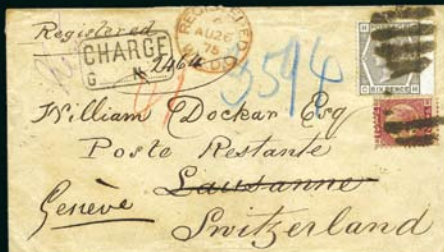 Registered
CHARGE
G N 2464
REGISTERED
AU 26
75
3594
William Dockar Esq
Poste Restante
Lausanne
Genève
Switzerland
SIX PENCE